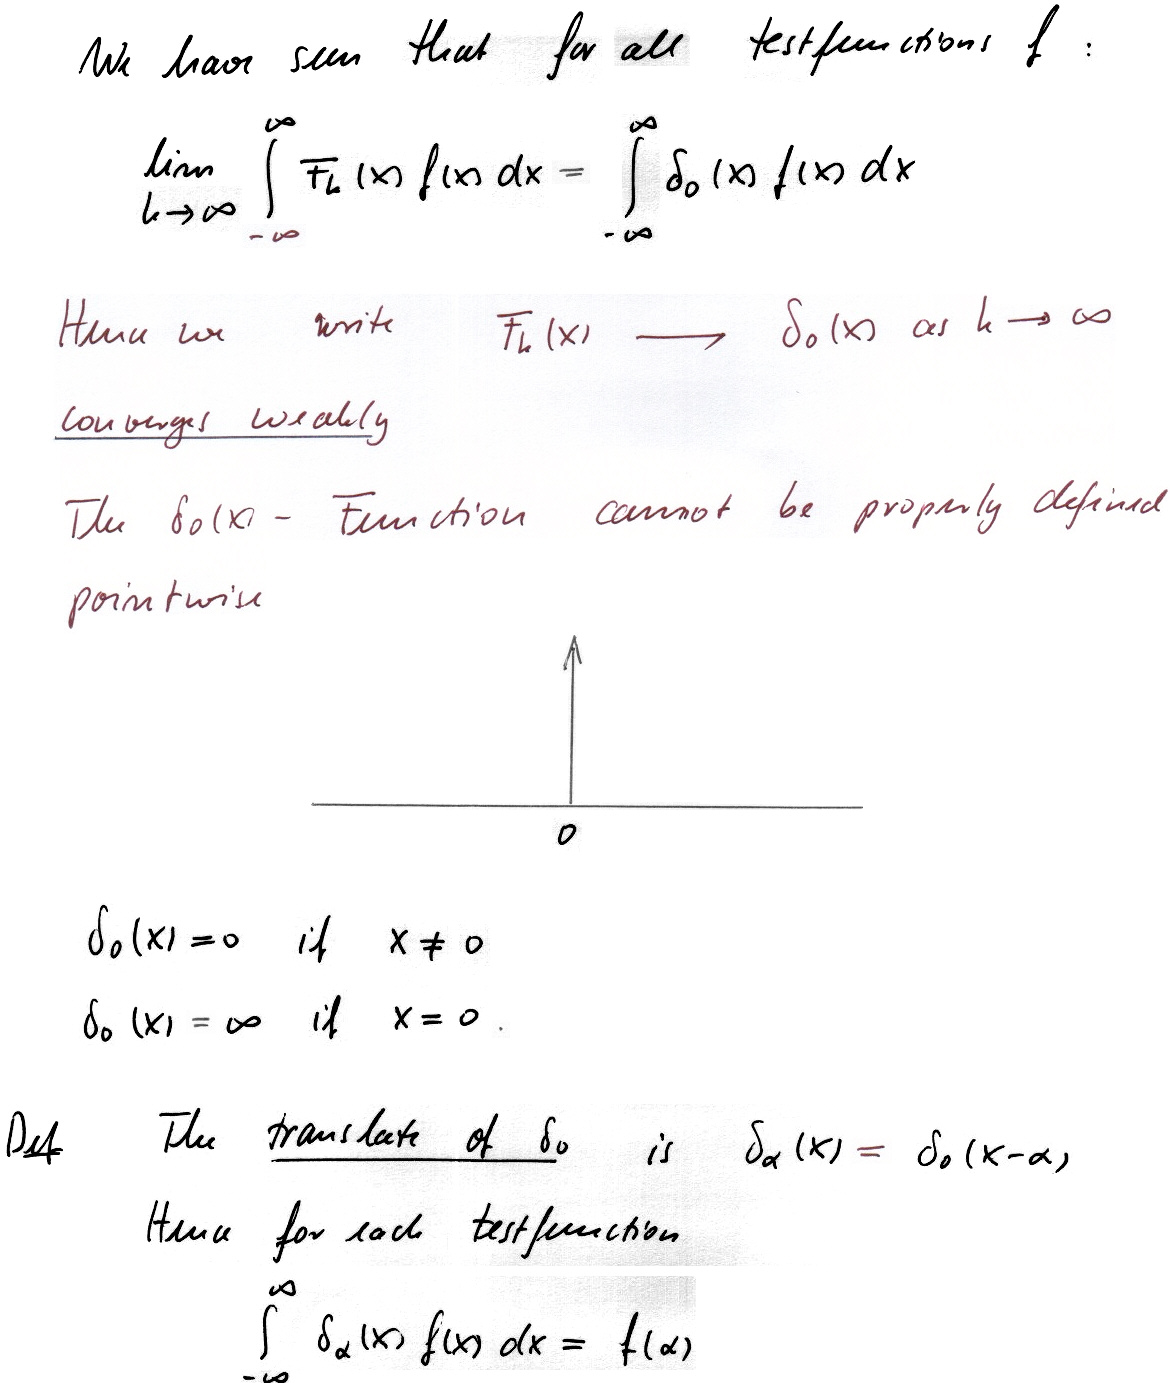 We have seen that for all testfunctions f :
lim k→∞ ∫_{-∞}^{∞} F_k(x) f(x) dx = ∫_{-∞}^{∞} δ₀(x) f(x) dx
Hence we write F_k(x) ⟶ δ₀(x) as k → ∞
converges weakly
The δ₀(x) - Function cannot be properly defined
pointwise
0
δ₀(x) = 0 if x ≠ 0
δ₀(x) = ∞ if x = 0 .
Def The translate of δ₀ is δ_α(x) = δ₀(x-α)
Hence for each testfunction
∫_{-∞}^{∞} δ_α(x) f(x) dx = f(α)